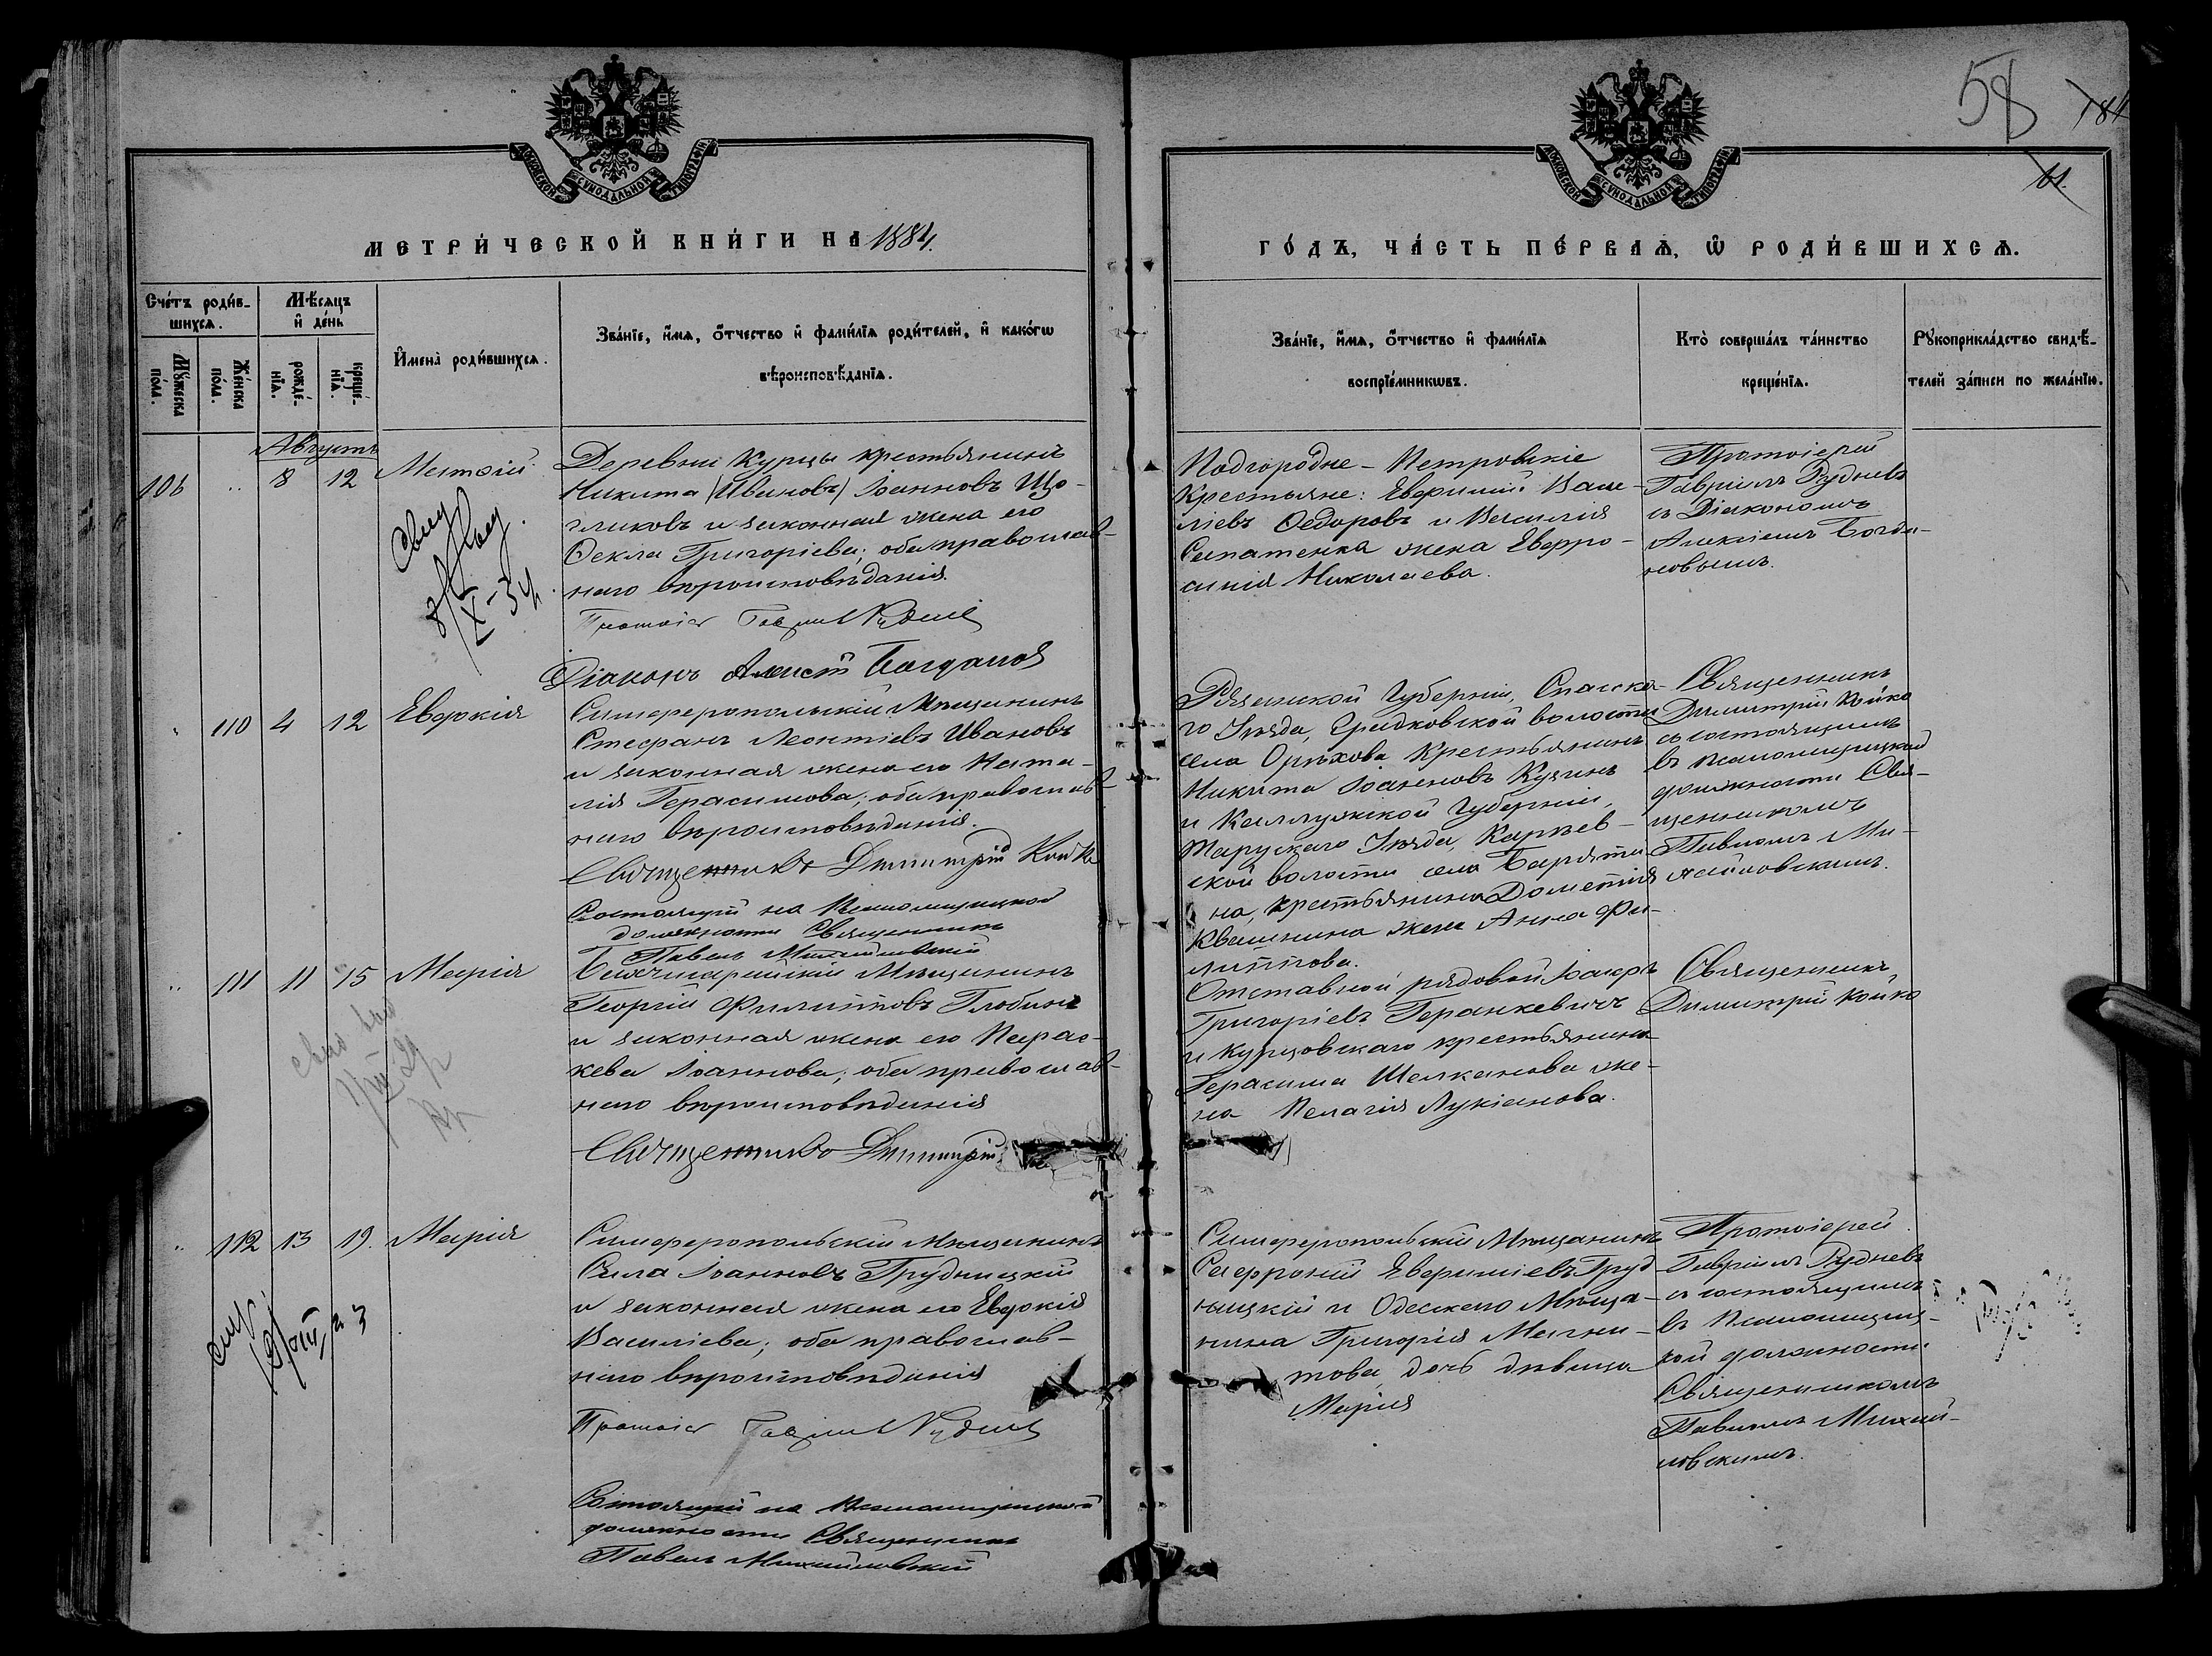 58
184
61.
МОСКОВСКОЙ СѴНОДАЛЬНОЙ ТИПОГРАФІИ
МОСКОВСКОЙ СѴНОДАЛЬНОЙ ТИПОГРАФІИ
МЕТРИ́ЧЕСКОЙ КНИ́ГИ НА 1884.
ГО́ДЪ, ЧА́СТЬ ПЕ́РВАѦ, Ѡ РОДИ́ВШИХСѦ.
Сче́тъ роди́в-
шихсѧ.
Мꙋ́жеска по́ла.
Же́нска по́ла.
Мѣ́сѧцъ
и҆ де́нь
рожде́-
нїѧ.
креще́-
нїѧ.
И҆мена̀ роди́вшихсѧ.
Зва́нїе, и҆́мѧ, ѻ҆́тчество и҆ фами́лїѧ роди́телей, и҆ како́гѡ
вѣроисповѣ́данїѧ.
Зва́нїе, и҆́мѧ, ѻ҆́тчество и҆ фами́лїѧ
воспрїе́мникѡвъ.
Кто̀ соверша́лъ та́инство
креще́нїѧ.
Рꙋкоприкла́дство свидѣ́-
телей за́писи по жела́нїю.
Августъ
106 " 8 12
Деревни Курцы крестьянинъ
Никита (Ивановъ) Іоанновъ Що-
гликовъ и законная жена его
Ѳекла Григоріева; оба православ-
наго вѣроисповѣданія.
Протоіер Гавриил Руднев
Діаконъ Алексій Богданов
Подгородне-Петровскіе
Крестьяне: Евфимій Васи-
ліевъ Ѳедоровъ и Василія
жена Евфро-
синія Николаева.
Протоіерей
Гавріилъ Рудневъ
съ Діакономъ
Алексіемъ Богда-
новымъ.
" 110 4 12 Евдокія
Симферопольскій Мѣщанинъ
Стефанъ Леонтіевъ Ивановъ
и законная жена его Ната-
лія Герасимова; оба православ-
наго вѣроисповѣданія.
Священникъ Димитрій Койко
Состоящій на Псаломщицкой
должности Священникъ
Павелъ Михайловскій
Рязанской Губерніи, Спасска-
го Уѣзда, волости
села Орѣхова Крестьянинъ
Никита Іоанновъ Кузинъ
и Каллужской Губерніи,
Тарускаго Уѣзда, Карпев-
ской волости села Баряти-
на, крестьянина Дометія
Квашнина жена Анна Фи-
липпова.
Священникъ
Димитрій Койко
съ состоящимъ
въ псаломщицкой
должности Свя-
щенникомъ
Павломъ Ми-
хайловскимъ.
" 111 11 15 Марія
Бахчисарайскій Мѣщанинъ
Георгій Филипповъ Глобинъ
и законная жена его Парас-
кева Іоаннова; оба православ-
наго вѣроисповѣданія
Священникъ Димитрій
Отставной рядовой Іосифъ
Григоріевъ Геранкевичъ
и Курцовскаго крестьянина
Герасима Шелканова же-
на Пелагія Лукіанова.
Священникъ
Димитрій Койко
" 112 13 19. Марія
Симферопольскій Мѣщанинъ
Сила Іоанновъ Грудницкій
и законная жена его Евдокія
Василіева; оба православ-
наго вѣроисповѣданія
Протоіер Гавриил Руднев
Состоящій на Псаломщицкой
должности Священникъ
Павелъ Михайловскій
Симферопольскій Мѣщанинъ
Софроній Евфиміевъ Груд-
ницкій и Одесскаго Мѣща-
нина Григорія Магни-
това дочь дѣвица
Марія
Протоіерей
Гавріилъ Рудневъ
съ состоящимъ
въ Псаломщиц-
кой должности
Священникомъ
Павломъ Михай-
ловскимъ.